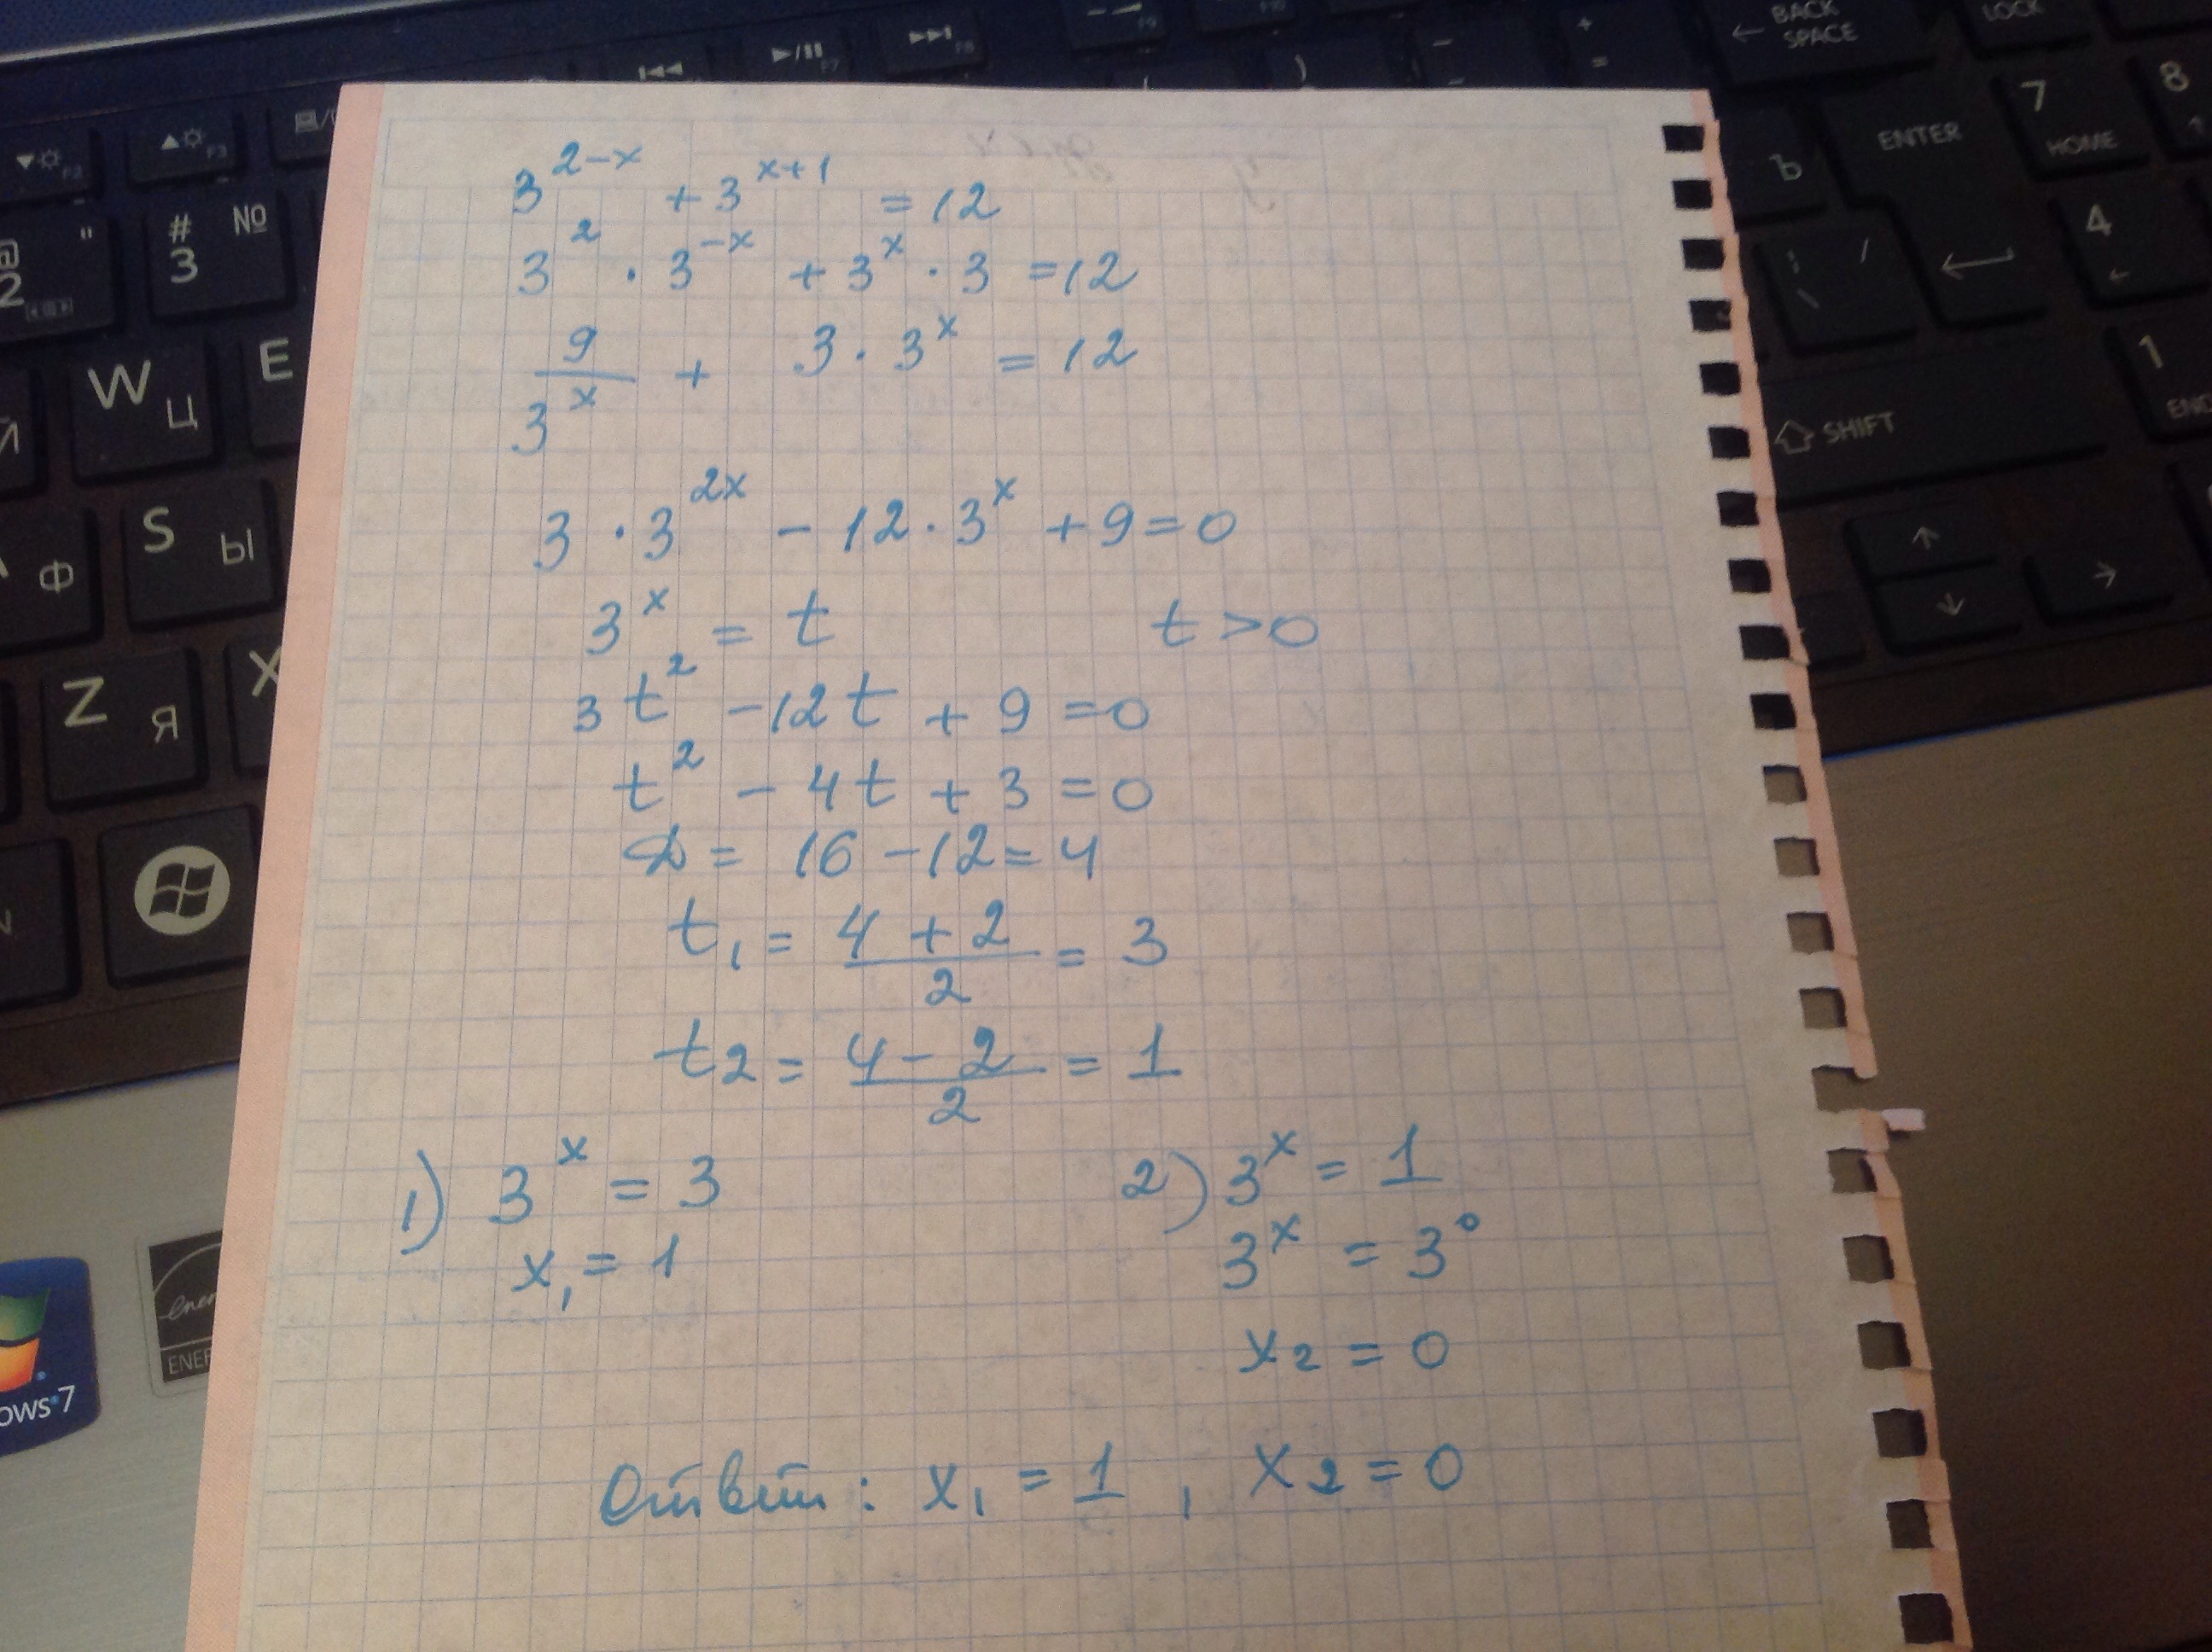 3^{2-x} + 3^{x+1} = 12
3^2 · 3^{-x} + 3^x · 3 = 12
9/3^x + 3 · 3^x = 12
3 · 3^{2x} - 12 · 3^x + 9 = 0
3^x = t t > 0
3t^2 - 12t + 9 = 0
t^2 - 4t + 3 = 0
D = 16 - 12 = 4
t_1 = (4 + 2)/2 = 3
t_2 = (4 - 2)/2 = 1
1) 3^x = 3 2) 3^x = 1
x_1 = 1 3^x = 3^0
x_2 = 0
Ответ: x_1 = 1, x_2 = 0
BACK SPACE
LOCK
ENTER
7 HOME
8
Ъ
4
1
SHIFT
F2
F3
F7
F8
F9
F10
@ 2 "
# 3 №
W Ц
E
Й
S Ы
Ф
Z Я
X
ENER
ows 7